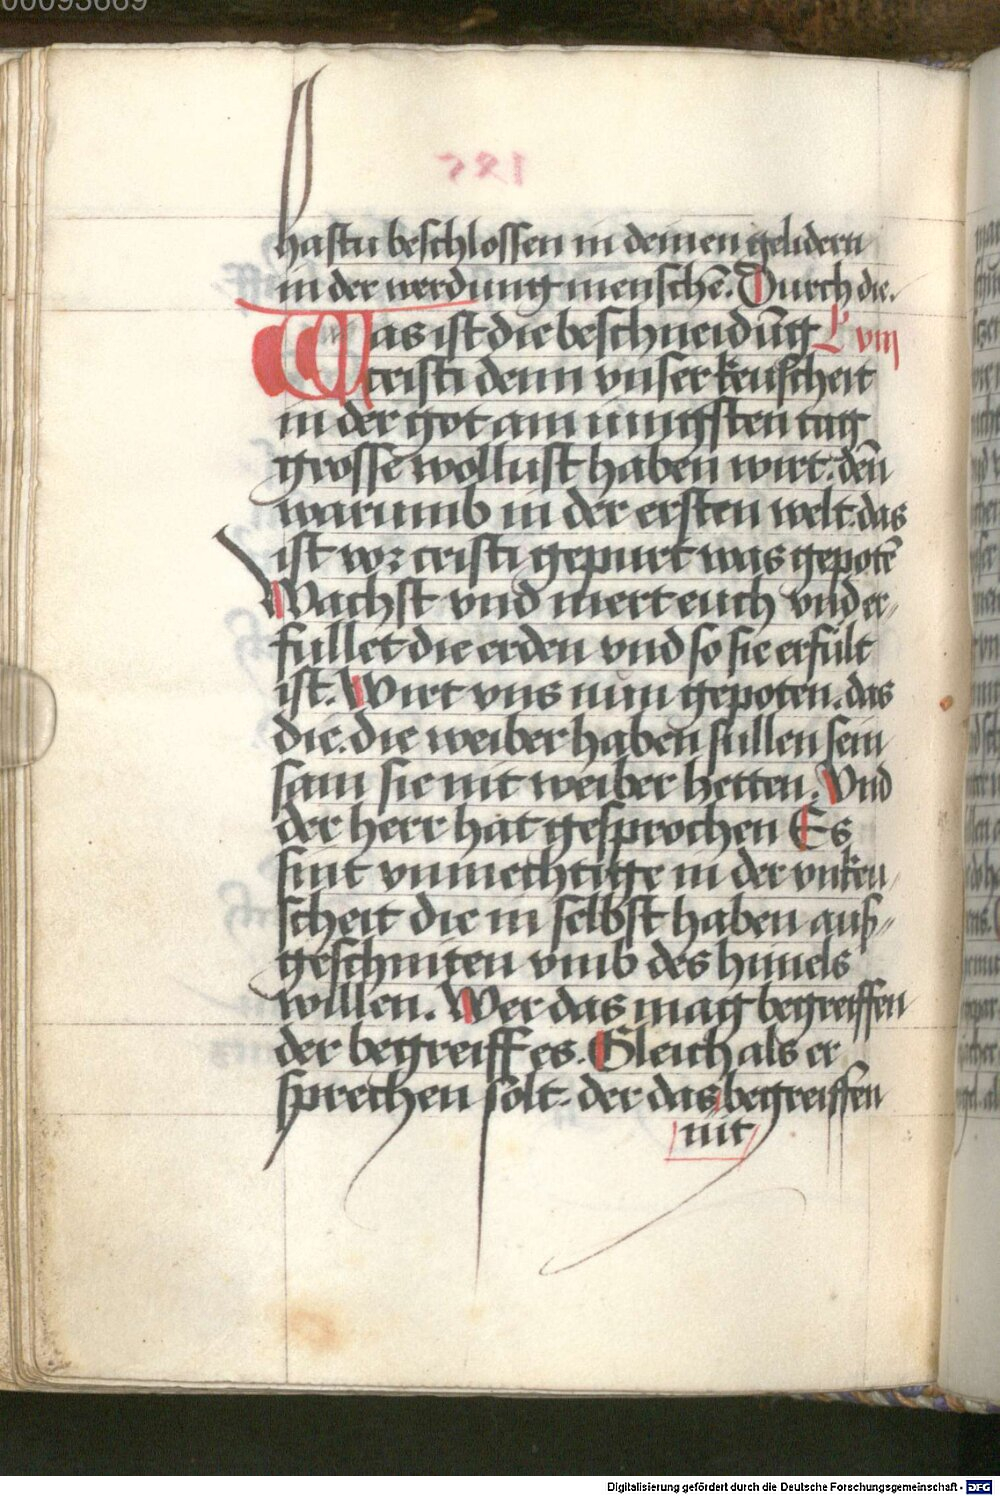 hastu beschlossen in deinen gelidern
in der werdung menschē. Durch die.
Was ist die beschneidūg L viij
cristi denn vnser keuscheit
in der got am iungsten tag
grosse wollust haben wirt. dēn
warumb in der ersten welt. das
ist vor cristi gepurt was gepotē
Wachst vnd mert euch vnd er-
fullet die erden vnd so sie erfült
ist. Wirt vns nun gepoten. das
die. die weiber haben sullen sein
sam sie nit weiber hetten. Vnd
der herr hat gesprochen Es
sint vnmechtige in der vnkeu-
scheit die in selbst haben auß-
geschniten vmb des himels
willen. Wer das mag begreiffen
der begreiff es. Gleich als er
sprechen sölt. der das begreiffen
nit
Digitalisierung gefördert durch die Deutsche Forschungsgemeinschaft - DFG